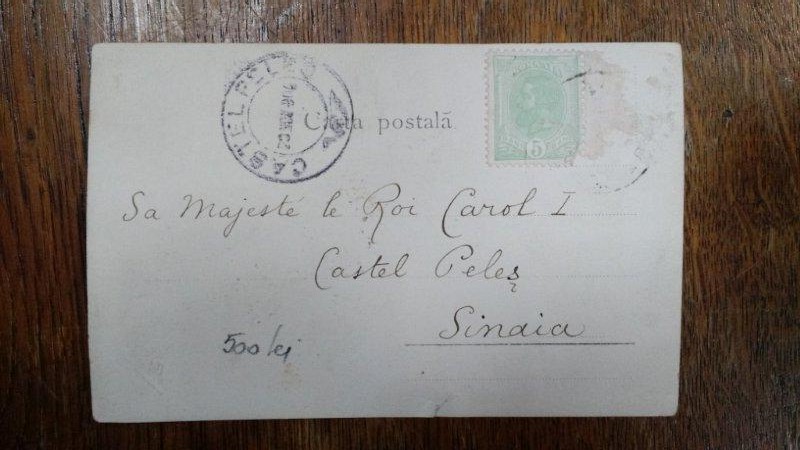 CASTEL PELEȘ
Carta postală
5
Sa Majesté le Roi Carol I
Castel Peleș
Sinaia
500 lei